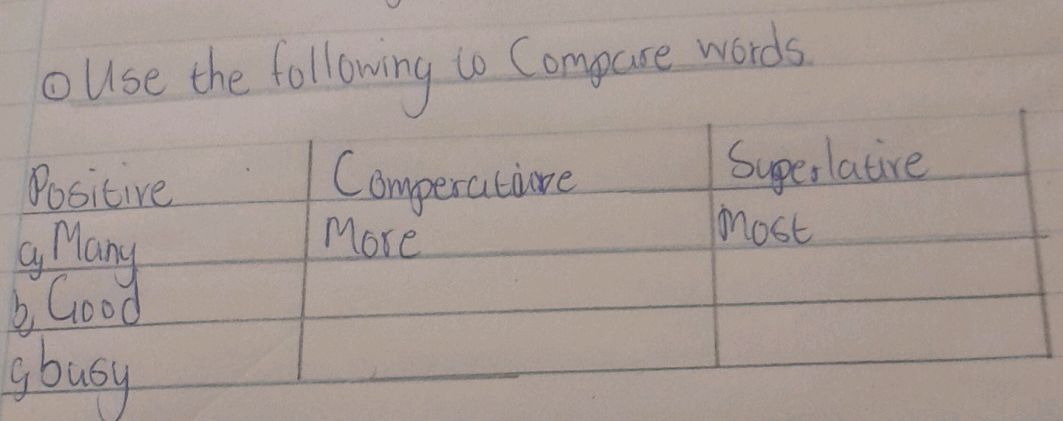 ① Use the following to Compare words.
Positive Comperative Superlative
a, Many More Most
b, Good
c, busy